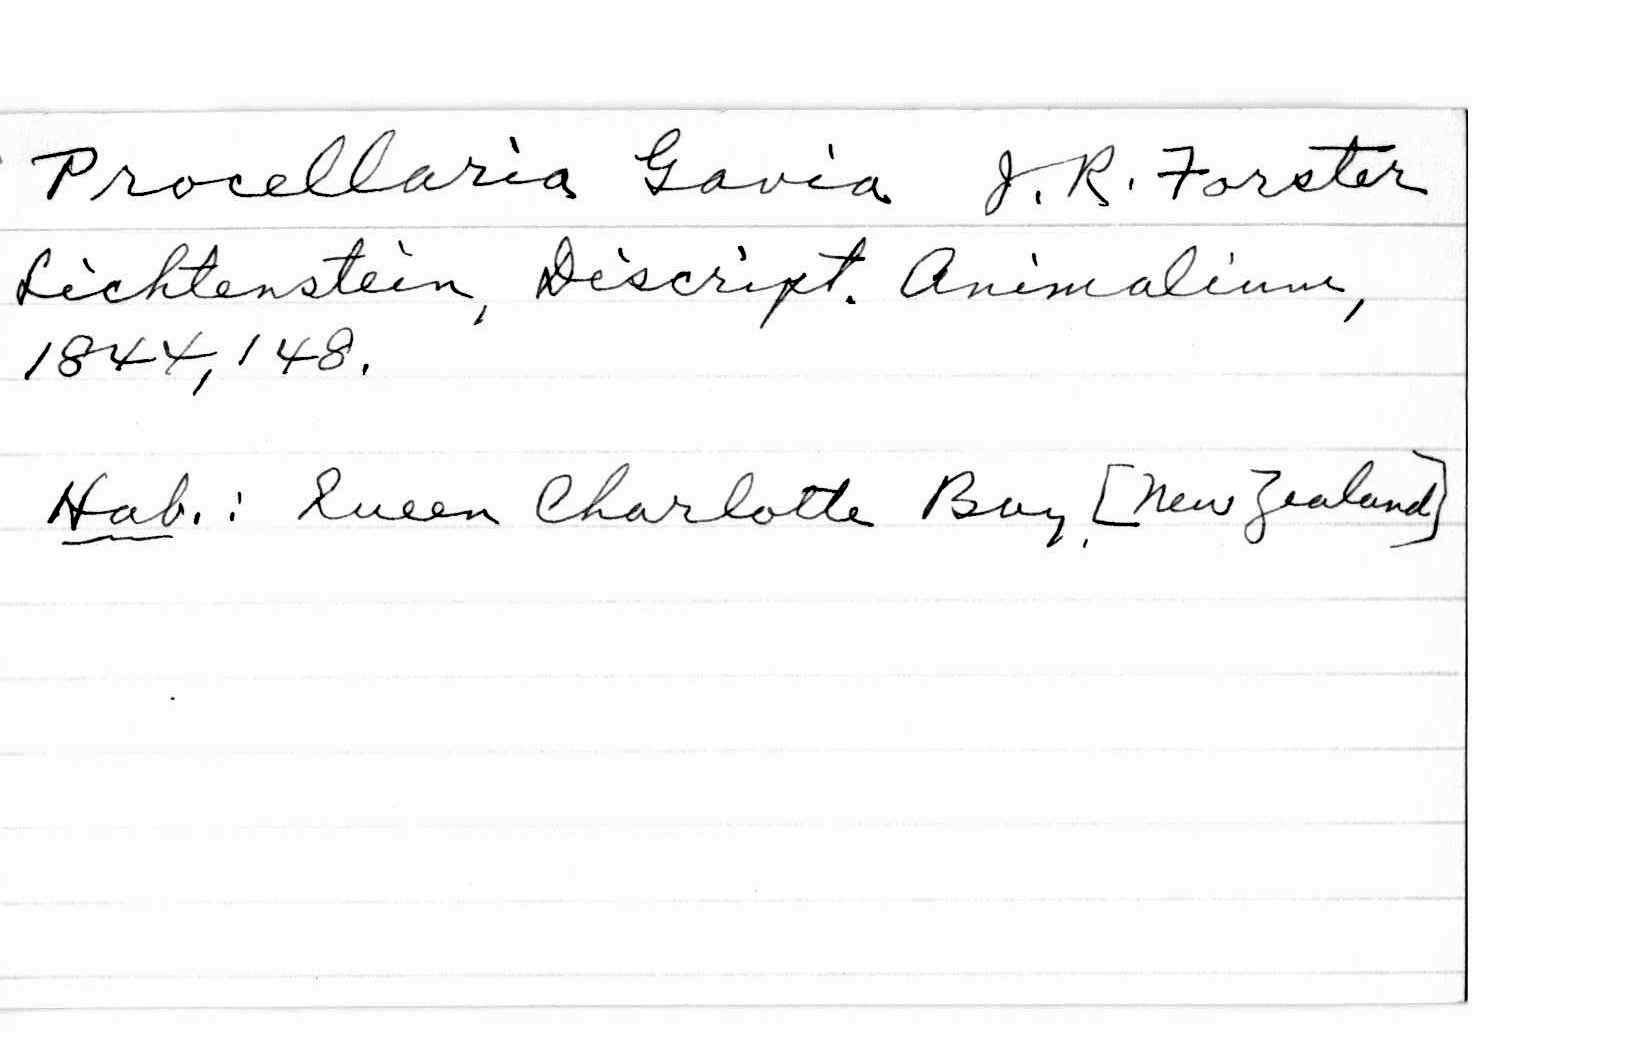 Procellaria Gavia J. R. Forster
Lichtenstein, Discript. Animalium,
1844, 148.
Hab.: Queen Charlotte Bay, [New Zealand]